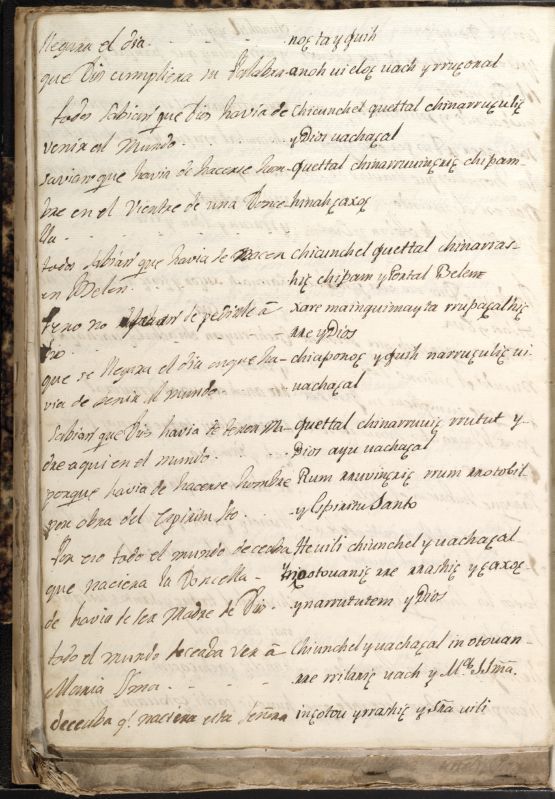 llegara el dia. - noꜫta y ꜭuih
que Dios cumpliera su Palabra - anoh uicloꜫ uach y rruꜫonal
todos sabian que Dios havia de Chicunchel quettal chinarruꜫuliꜫ
venir al Mundo. y Dios uachaꜫal
savian que havia de hacerse hom- quettal chinarruuinꜫniꜫ chipam
bre en el Vientre de una Donce- hinahꜫaxoꜫ
lla.
todos sabian que havia de nacer chicunchel quettal chinarras-
en Belen. hiꜫ chipam y Portal Belem
Pero no de pedirle â xare mainquimayta rrupaꜫalniꜫ
Dio. rre y Dios
que se llegara el dia en que ha- chiaponoꜫ y ꜭuih narruꜫuliꜫ ui-
via de venir al mundo uachaꜫal
Sabian que Dios havia de tener Ma- quettal chinarruuiꜫ rrutut y-
dre aqui en el mundo. Dios ayu uachaꜫal
porque havia de hacerse hombre Rum rruuinꜫniꜫ rrum rrotobil
por obra del Espiritu Sto. y Espiritu Santo
Por eso todo el mundo deceaba He uili chiunchel y uachaꜫal-
que naciera la Doncella - inꜫotouaniꜫ rre rrashiꜫ y ꜫaxoꜫ-
de havia de ser Madre de Dios. y narrututem y Dios
todo el mundo deceaba ver â - Chiunchel y uachaꜫal in otouan-
Maria Ssma. rre rrilaniꜫ uach y Me. SSma.
deceaba q. naciera esta Señora inꜫotou y rrashiꜫ y Sra uili